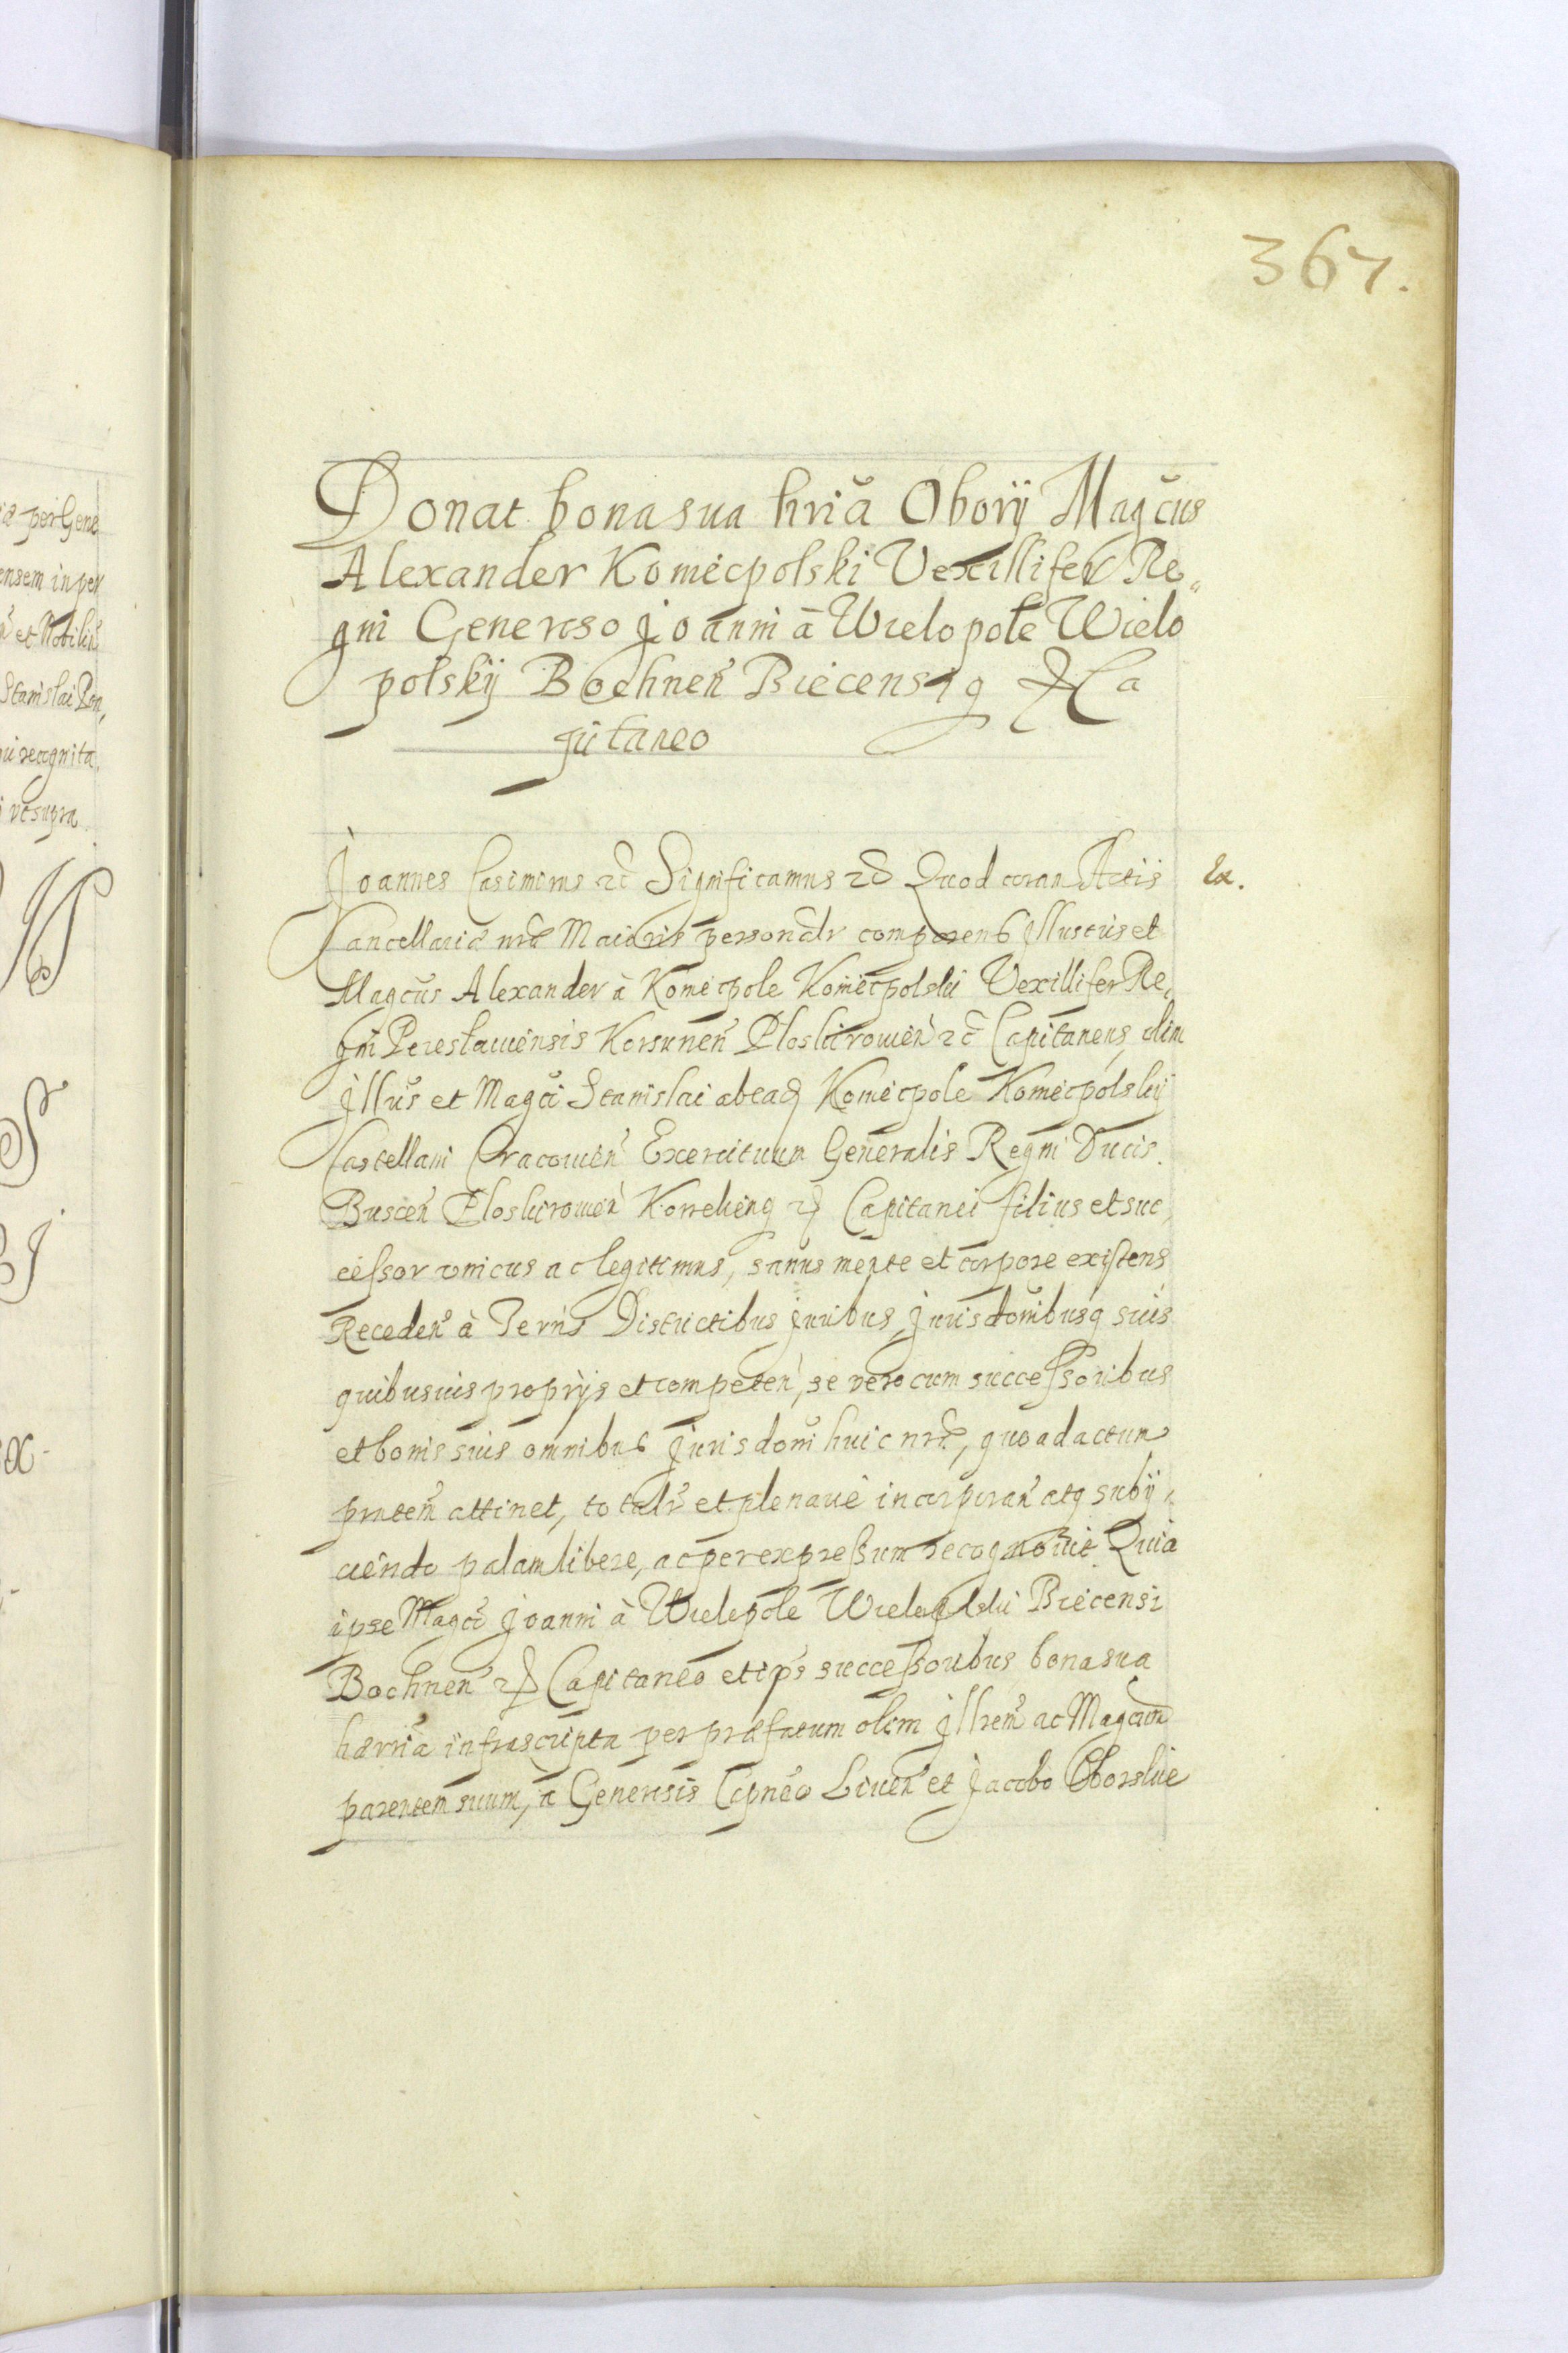 367.
Donat bona sua hriã Oborÿ Magcũs
Alexander Komecpolski Vexillifer Re„
gni Generoso Joanni à Wielopole Wielo
polskÿ Bochneñ Biecensiq &c Ca
pitaneo
Joannes Casimirus &c Significamus &c Quod coram Actis
Cancellariæ nræ Maioris personalr comparens Illustris et
Magcũs Alexander à Komecpole Komecpolski Vexillifer Re„
gni Pereslauiensis Korsuneñ Ploskirowieñ &c Capitaneus, olim
Illũs et Magci Stanislai ab eadē Komecpole Komecpolskÿ
Castellani Cracouieñ Exercituum Generalis Regni Ducis
Busceñ Ploskirowieñ &c Capitanei filius et suc„
ceſsor vnicus ac legitimus, sanus mente et corpore existens
Recedeñ à Terris Districtibus juribus jurisdoñibusq suis
quibusuis proprÿs et competeñ, se vero cum succeſsoribus
et bonis suis omnibus jurisdoñi huic nræ, quo ad actum
pñtem attinet, totalr et plenariè incorporañ atq subÿ„
ciendo palam libere, ac per expreſsum recognouit. Quia
ipse Magco Joanni à Wielopole Wielopolski Biecensi
Bochneñ &c Capitaneo et ips succeſsoribus, bona sua
hærria infrascripta per præfatum olim Illrem ac Magcum
parentem suum, à Generosis Cipneo Liueñ et Jacobo Oborskie
Ex.
ia per Gene
ensem in per
et Nobiliũ
Stanislai Kon„
ui recognita
vt supra